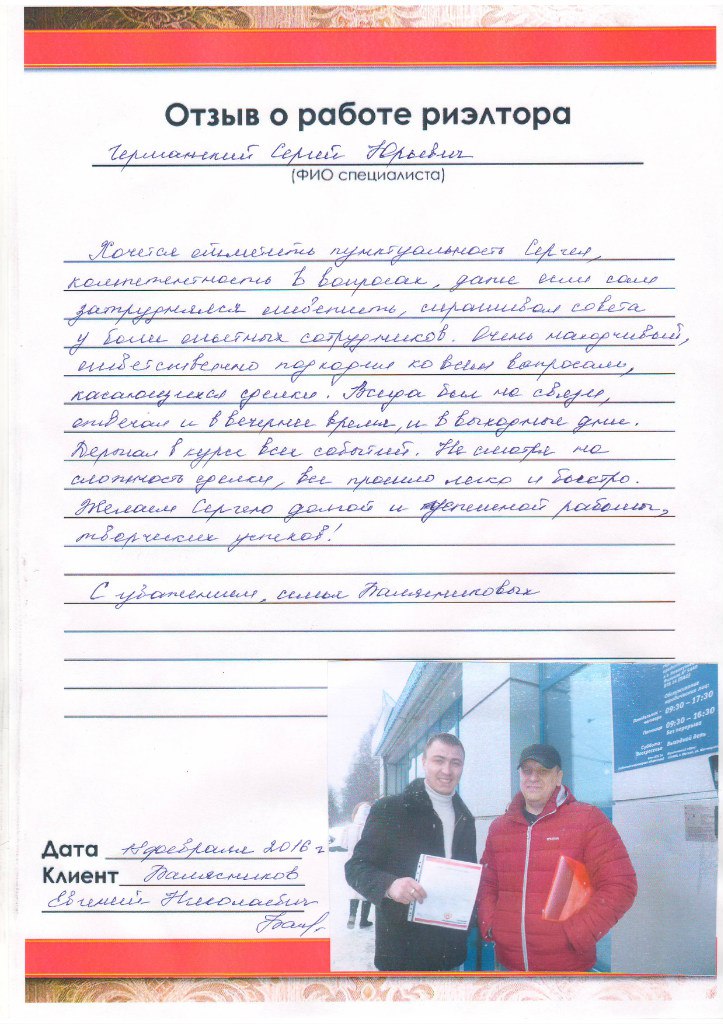 Отзыв о работе риэлтора
Германский Сергей Юрьевич
(ФИО специалиста)
Хочется отметить пунктуальность Сергея,
компетентность в вопросах, даже если сам
затруднялся ответить, спрашивал совета
у более опытных сотрудников. Очень находчивый,
ответственно подходил ко всем вопросам,
касающихся сделки. Всегда был на связи,
отвечал и в вечернее время, и в выходные дни.
Держал в курсе всех событий. Не смотря на
сложность сделки, все прошло легко и быстро.
Желаем Сергею долгой и успешной работы,
творческих успехов!
С уважением, семья Балясниковых
Обслуживание
юридических лиц:
09:30 – 17:30
Пятница 09:30 – 16:30
без перерыва
Суббота-
Воскресенье Выходной день
Дата февраля 2016 г
Клиент Балясников
Евгений Николаевич